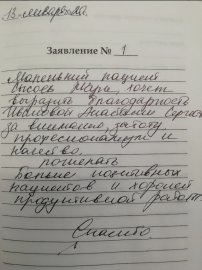 13 января 20.
Заявление № 1
Маленький пациент
Сысоев Марк, хочет
выразить благодарность
Сергеевне
за внимание, заботу,
профессионализм и
качество.
пожелать
Больше позитивных
пациентов и хорошей
продуктивной работы.
Спасибо